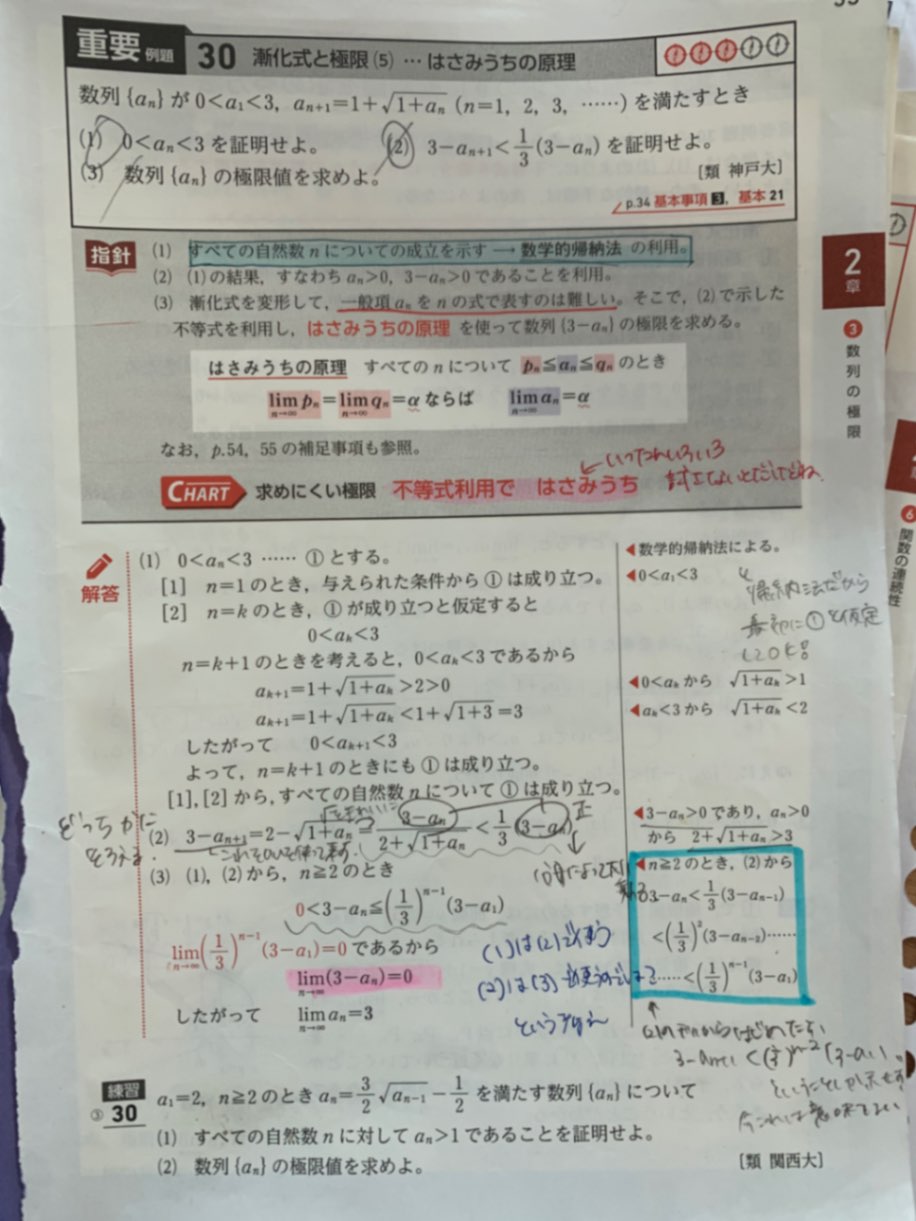 重要 例題 30 漸化式と極限(5) … はさみうちの原理
数列 {aₙ} が 0<a₁<3, aₙ₊₁=1+√(1+aₙ) (n=1, 2, 3, ……) を満たすとき
(1) 0<aₙ<3 を証明せよ。 (2) 3−aₙ₊₁<1/3(3−aₙ) を証明せよ。
(3) 数列 {aₙ} の極限値を求めよ。 [類 神戸大]
p.34 基本事項 3, 基本 21
指針 (1) すべての自然数 n についての成立を示す → 数学的帰納法 の利用。
(2) (1)の結果, すなわち aₙ>0, 3−aₙ>0 であることを利用。
(3) 漸化式を変形して, 一般項 aₙ を n の式で表すのは難しい。そこで, (2)で示した
不等式を利用し, はさみうちの原理 を使って数列 {3−aₙ} の極限を求める。
はさみうちの原理 すべての n について pₙ≦aₙ≦qₙ のとき
lim n→∞ pₙ = lim n→∞ qₙ=α ならば lim n→∞ aₙ=α
なお, p.54, 55 の補足事項も参照。
CHART 求めにくい極限 不等式利用で はさみうち
2章
3 数列の極限
6 関数の連続性
解答
(1) 0<aₙ<3 …… ① とする。
[1] n=1 のとき, 与えられた条件から ① は成り立つ。
[2] n=k のとき, ① が成り立つと仮定すると
0<aₖ<3
n=k+1 のときを考えると, 0<aₖ<3 であるから
aₖ₊₁=1+√(1+aₖ)>2>0
aₖ₊₁=1+√(1+aₖ)<1+√(1+3)=3
したがって 0<aₖ₊₁<3
よって, n=k+1 のときにも ① は成り立つ。
[1], [2] から, すべての自然数 n について ① は成り立つ。
(2) 3−aₙ₊₁=2−√(1+aₙ)=(3−aₙ)/(2+√(1+aₙ))<1/3(3−aₙ)
(3) (1), (2) から, n≧2 のとき
0<3−aₙ≦(1/3)ⁿ⁻¹(3−a₁)
lim n→∞ (1/3)ⁿ⁻¹(3−a₁)=0 であるから
lim n→∞ (3−aₙ)=0
したがって lim n→∞ aₙ=3
◀数学的帰納法による。
◀0<a₁<3
帰納法だから
①を仮定
◀0<aₖ から √(1+aₖ)>1
◀aₖ<3 から √(1+aₖ)<2
◀3−aₙ>0 であり, aₙ>0
から 2+√(1+aₙ)>3
◀n≧2 のとき, (2)から
3−aₙ<1/3(3−aₙ₋₁)
<(1/3)²(3−aₙ₋₂)……
……<(1/3)ⁿ⁻¹(3−a₁)
どっちかに
そろえる.
(1)は(2)で使う
練習 ③ 30 a₁=2, n≧2 のとき aₙ=3/2√aₙ₋₁−1/2 を満たす数列 {aₙ} について
(1) すべての自然数 n に対して aₙ>1 であることを証明せよ。
(2) 数列 {aₙ} の極限値を求めよ。 [類 関西大]